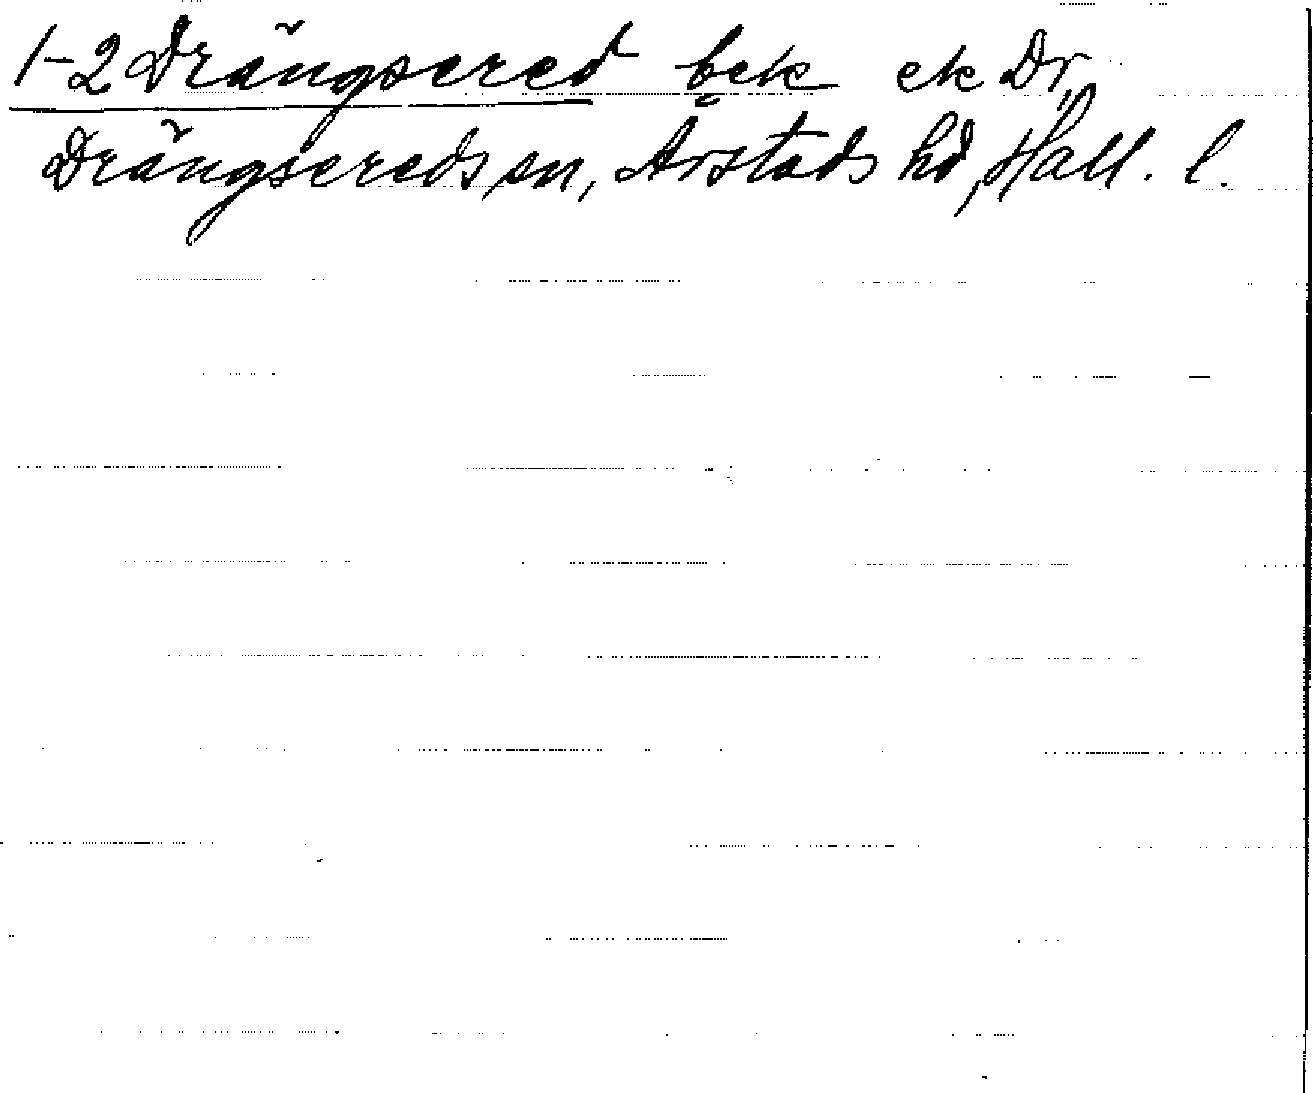 1-2 Drängsered bek ek Dr,
Drängsereds sn, Årstads hd, Hall. l.